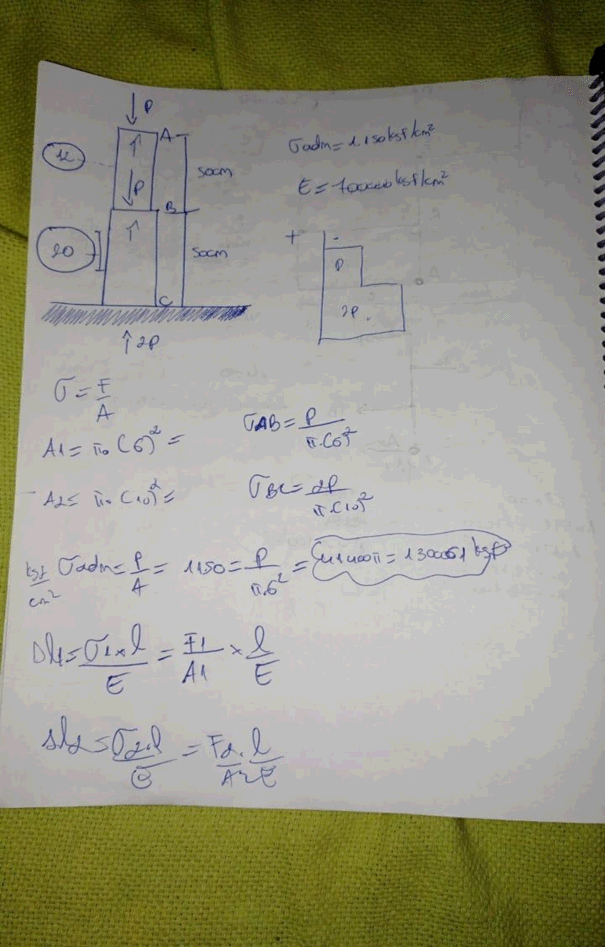 ↓ P
12
A
50cm
↓ P
B
20
50cm
C
↑ 2P
σadm = 1150 kgf/cm²
E = 700000 kgf/cm²
+ -
P
2P
σ = F/A
A1 = π.(6)² =
σAB = P/π.(6)²
A2 = π.(10)² =
σBC = 2P/π.(10)²
kgf/cm² σadm = P/A = 1150 = P/π.6² = 41400π = 130061 kgf
Δl1 = σ1 x l/E = F1/A1 x l/E
Δl2 = σ2.l/E = F2.l/A2 E